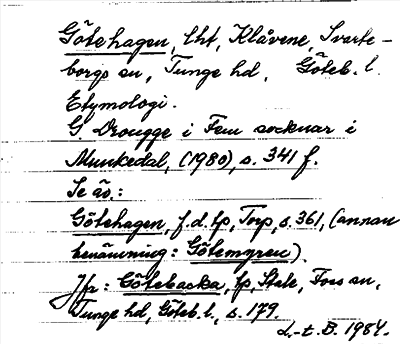 Götehagen, lht, Klåvene, Svarte-
borgs sn, Tunge hd, Göteb. l.
Etymologi.
G. Drougge i Fem socknar i
Munkedal, (1980), s. 341 f.
Se äv.:
Götehagen, f.d. tp, Torp, s. 361, (annan
benämning: Götemyren).
Jfr: Götebacka, tp, Stale, Foss sn,
Tunge hd, Göteb. l., s. 179.
L-t. B. 1984.